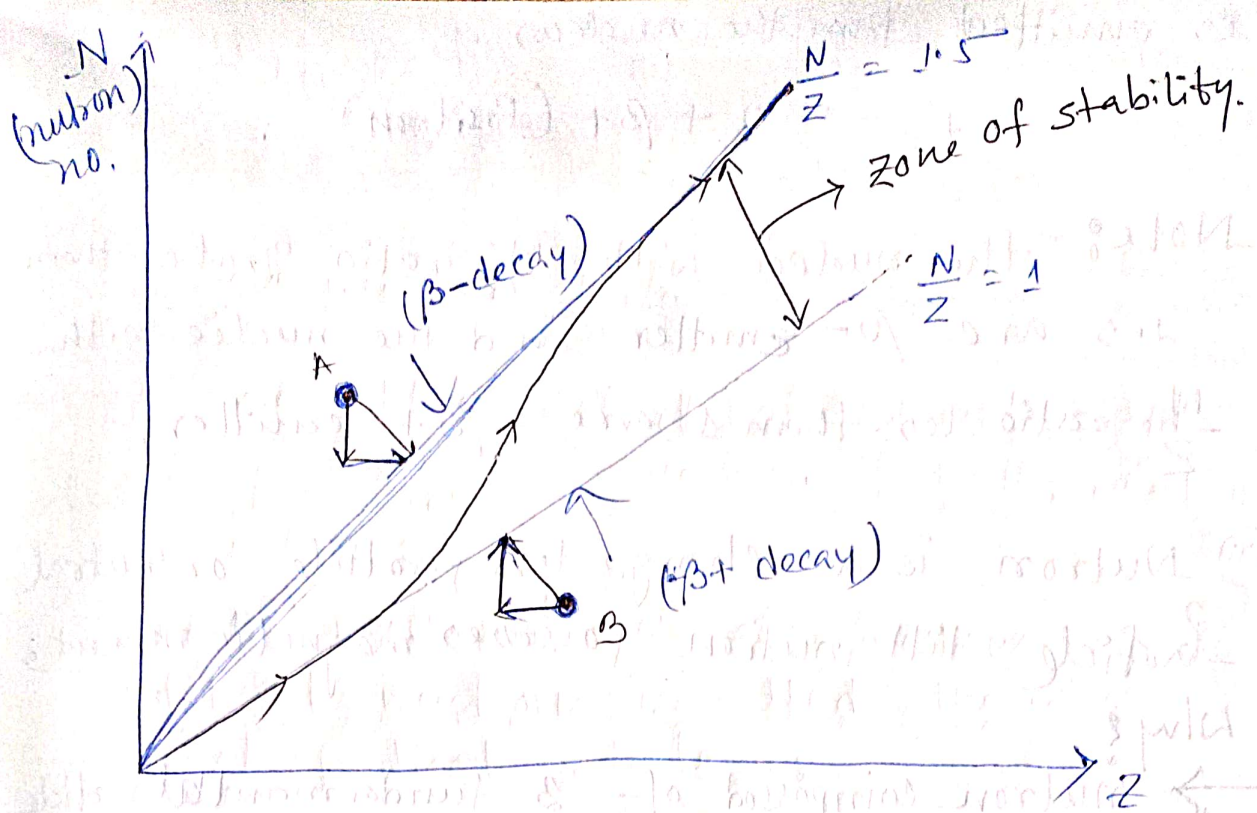 N
(nutron)
no.
N/Z = 1.5
zone of stability.
(β-decay)
N/Z = 1
A
(β+ decay)
B
Z